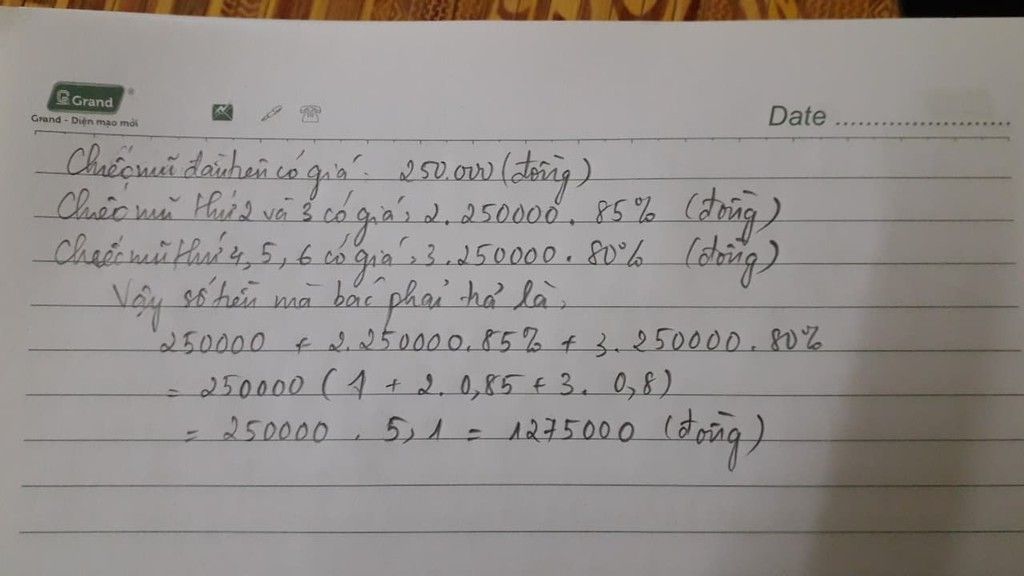 Grand
Grand - Diện mạo mới
Date
Chiếc mũ đầu tiên có giá: 250.000 (đồng)
Chiếc mũ thứ 2 và 3 có giá: 2.250000.85% (đồng)
Chiếc mũ thứ 4, 5, 6 có giá: 3.250000.80% (đồng)
Vậy số tiền mà bác phải trả là:
250000 + 2.250000.85% + 3.250000.80%
= 250000 (1 + 2.0,85 + 3.0,8)
= 250000 . 5,1 = 1275000 (đồng)